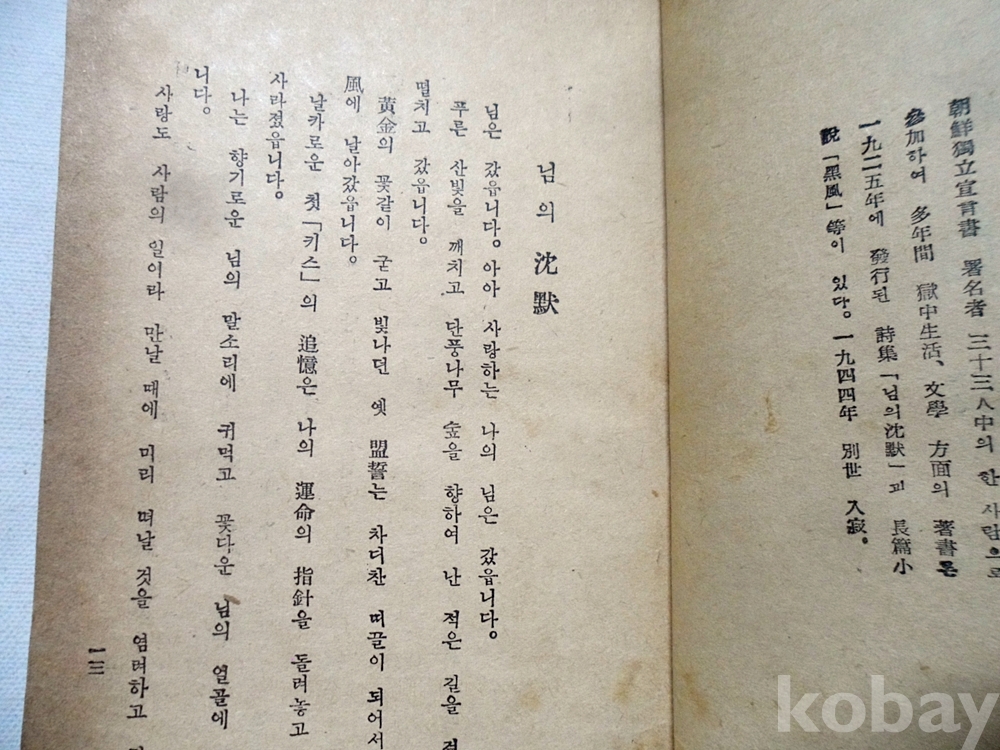 朝鮮獨立宣言書 署名者 三十三人中의 한 사람으로
參加하여 多年間 獄中生活、文學 方面의 著書론
一九二五年에 發行된 詩集「님의沈默」괴 長篇小
說「黑風」等이 있다。一九四四年 別世 入寂。
님의 沈默
님은 갔읍니다。아아 사랑하는 나의 님은 갔읍니다。
푸른 산빛을 깨치고 단풍나무 숲을 향하여 난 적은 길을 걸
떨치고 갔읍니다。
黃金의 꽃같이 굳고 빛나던 옛 盟誓는 차디찬 띠끌이 되어서
風에 날아갔읍니다。
날카로운 첫「키스」의 追憶은 나의 運命의 指針을 돌려놓고
사라졌읍니다。
나는 향기로운 님의 말소리에 귀먹고 꽃다운 님의 얼골에
니다。
사랑도 사람의 일이라 만날 때에 미리 떠날 것을 염려하고
一三
kobay